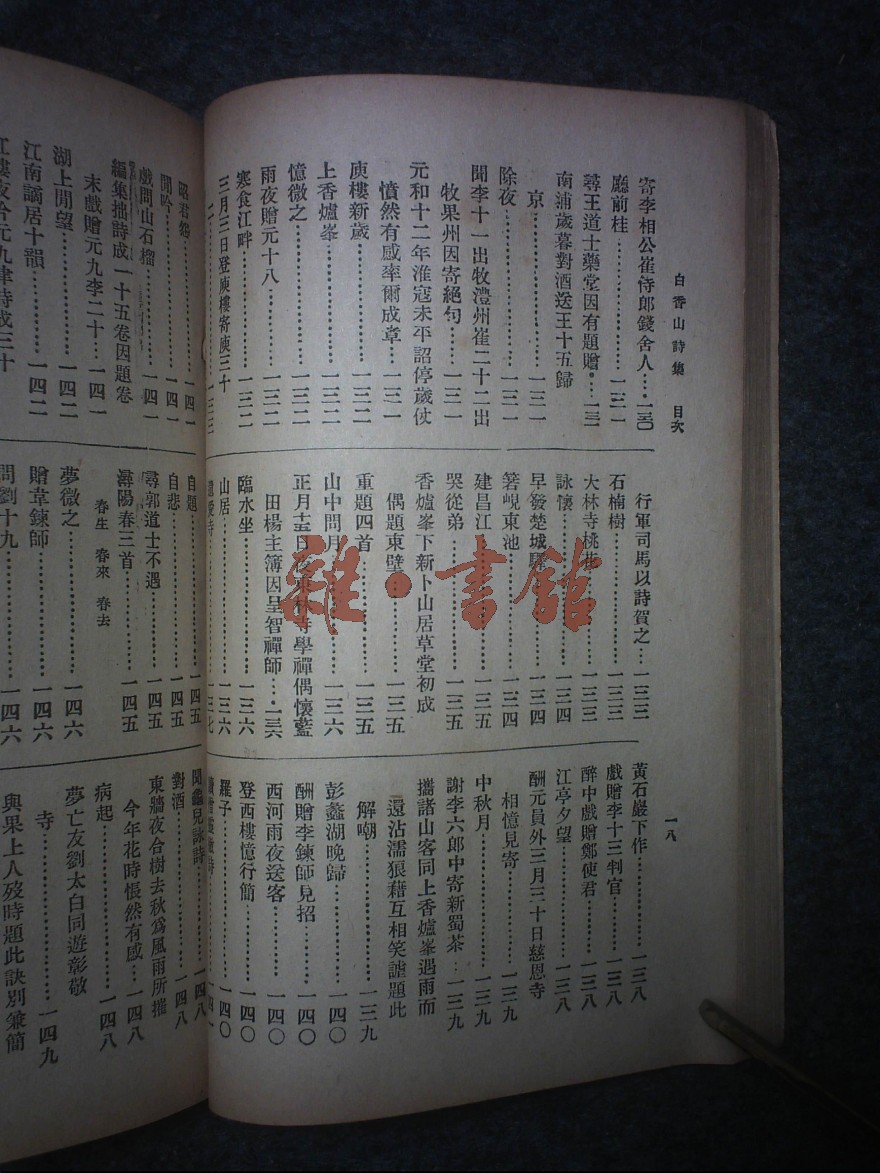 白香山詩集　目次
一八
寄李相公崔侍郎錢舍人…・一三〇
廳前桂………………一三一
尋王道士藥堂因有題贈・…一三一
南浦歲暮對酒送王十五歸
京………………一三一
除夜………………一三一
聞李十一出牧澧州崔二十二出
牧果州因寄絕句………一三一
元和十二年淮寇未平詔停歲仗
憤然有感率爾成章……一三一
庾樓新歲………………一三二
上香爐峯………………一三二
憶微之………………一三二
雨夜贈元十八…………一三二
寒食江畔………………一三二
三月三日登庾樓寄庾三十
二………………一三三
行軍司馬以詩賀之…一三三
石楠樹………………一三三
大林寺桃花……………一三三
詠懷………………一三四
早發楚城驛……………一三四
箬峴東池………………一三四
建昌江………………一三五
哭從弟………………一三五
香爐峯下新卜山居草堂初成
偶題東壁………………一三五
重題四首………………一三五
山中問月………………一三六
正月十五日夜東林寺學禪偶懷藍
田楊主簿因呈智禪師…・一三六
臨水坐………………一三六
山居………………一三六
遺愛寺………………一三七
黃石巖下作……………一三八
戲贈李十三判官………一三八
醉中戲贈鄭使君………一三八
江亭夕望………………一三八
酬元員外三月三十日慈恩寺
相憶見寄………………一三九
中秋月………………一三九
謝李六郎中寄新蜀茶…一三九
攜諸山客同上香爐峯遇雨而
還沾濡狼藉互相笑謔題此
解嘲………………一三九
彭蠡湖晚歸……………一四〇
酬贈李鍊師見招………一四〇
西河雨夜送客…………一四〇
登西樓憶行簡…………一四〇
羅子………………一四〇
昭君怨………………一四一
閒吟………………一四一
戲問山石榴……………一四一
編集拙詩成一十五卷因題卷
末戲贈元九李二十…一四一
湖上閒望………………一四二
江南謫居十韻…………一四二
江樓夜吟元九律詩成三十
自題………………一四五
自悲………………一四五
尋郭道士不遇…………一四五
潯陽春三首……………一四五
春生　春來　春去
夢微之………………一四六
贈韋鍊師………………一四六
問劉十九………………一四六
聞龜兒詠詩……………一四八
對酒………………一四八
東牆夜合樹去秋爲風雨所摧
今年花時悵然有感……一四八
病起………………一四八
夢亡友劉太白同遊彰敬
寺………………一四九
與果上人歿時題此訣別兼簡
雜・書館